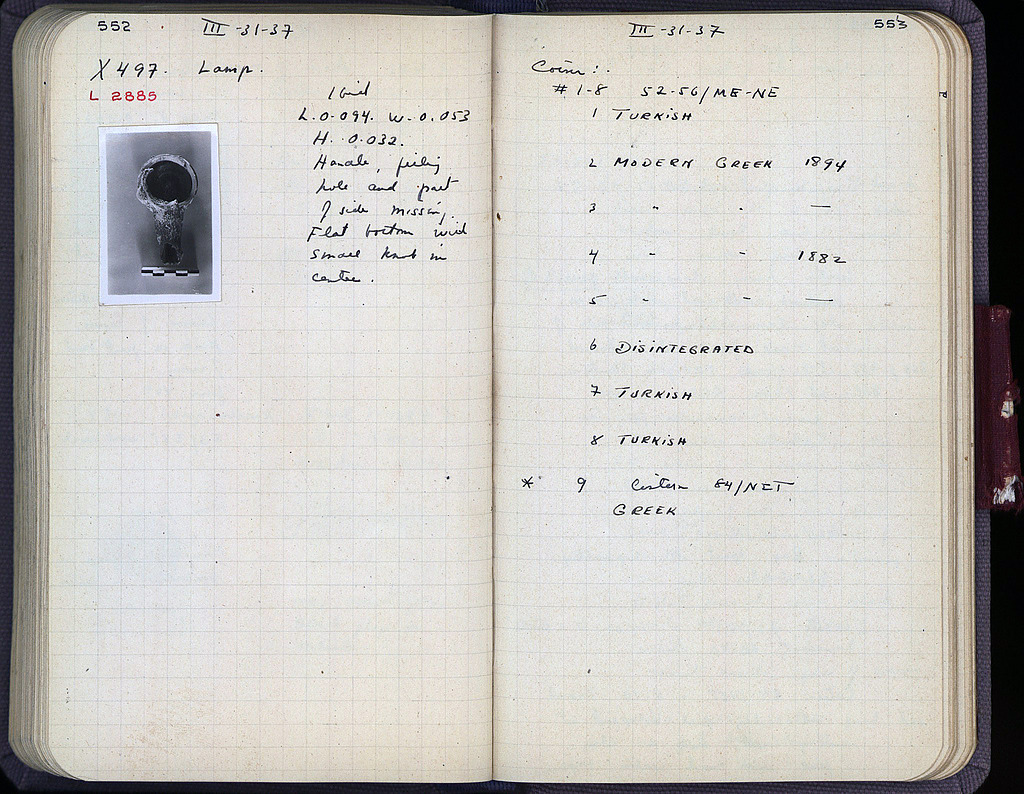 552 . III -31-37
X 497. Lamp.
L 2885
Ibid
L. 0.094. W. 0.053
H. 0.032.
Handle, filling
hole and part
of side missing.
Flat bottom with
small knob in
centre.
III -31-37 553
Coins:.
# 1-8 52-56/ME-NE
1 TURKISH
2 MODERN GREEK 1894
3 " " —
4 " " 1882
5 " " —
6 DISINTEGRATED
7 TURKISH
8 TURKISH
* 9 Cistern 84/NET
GREEK